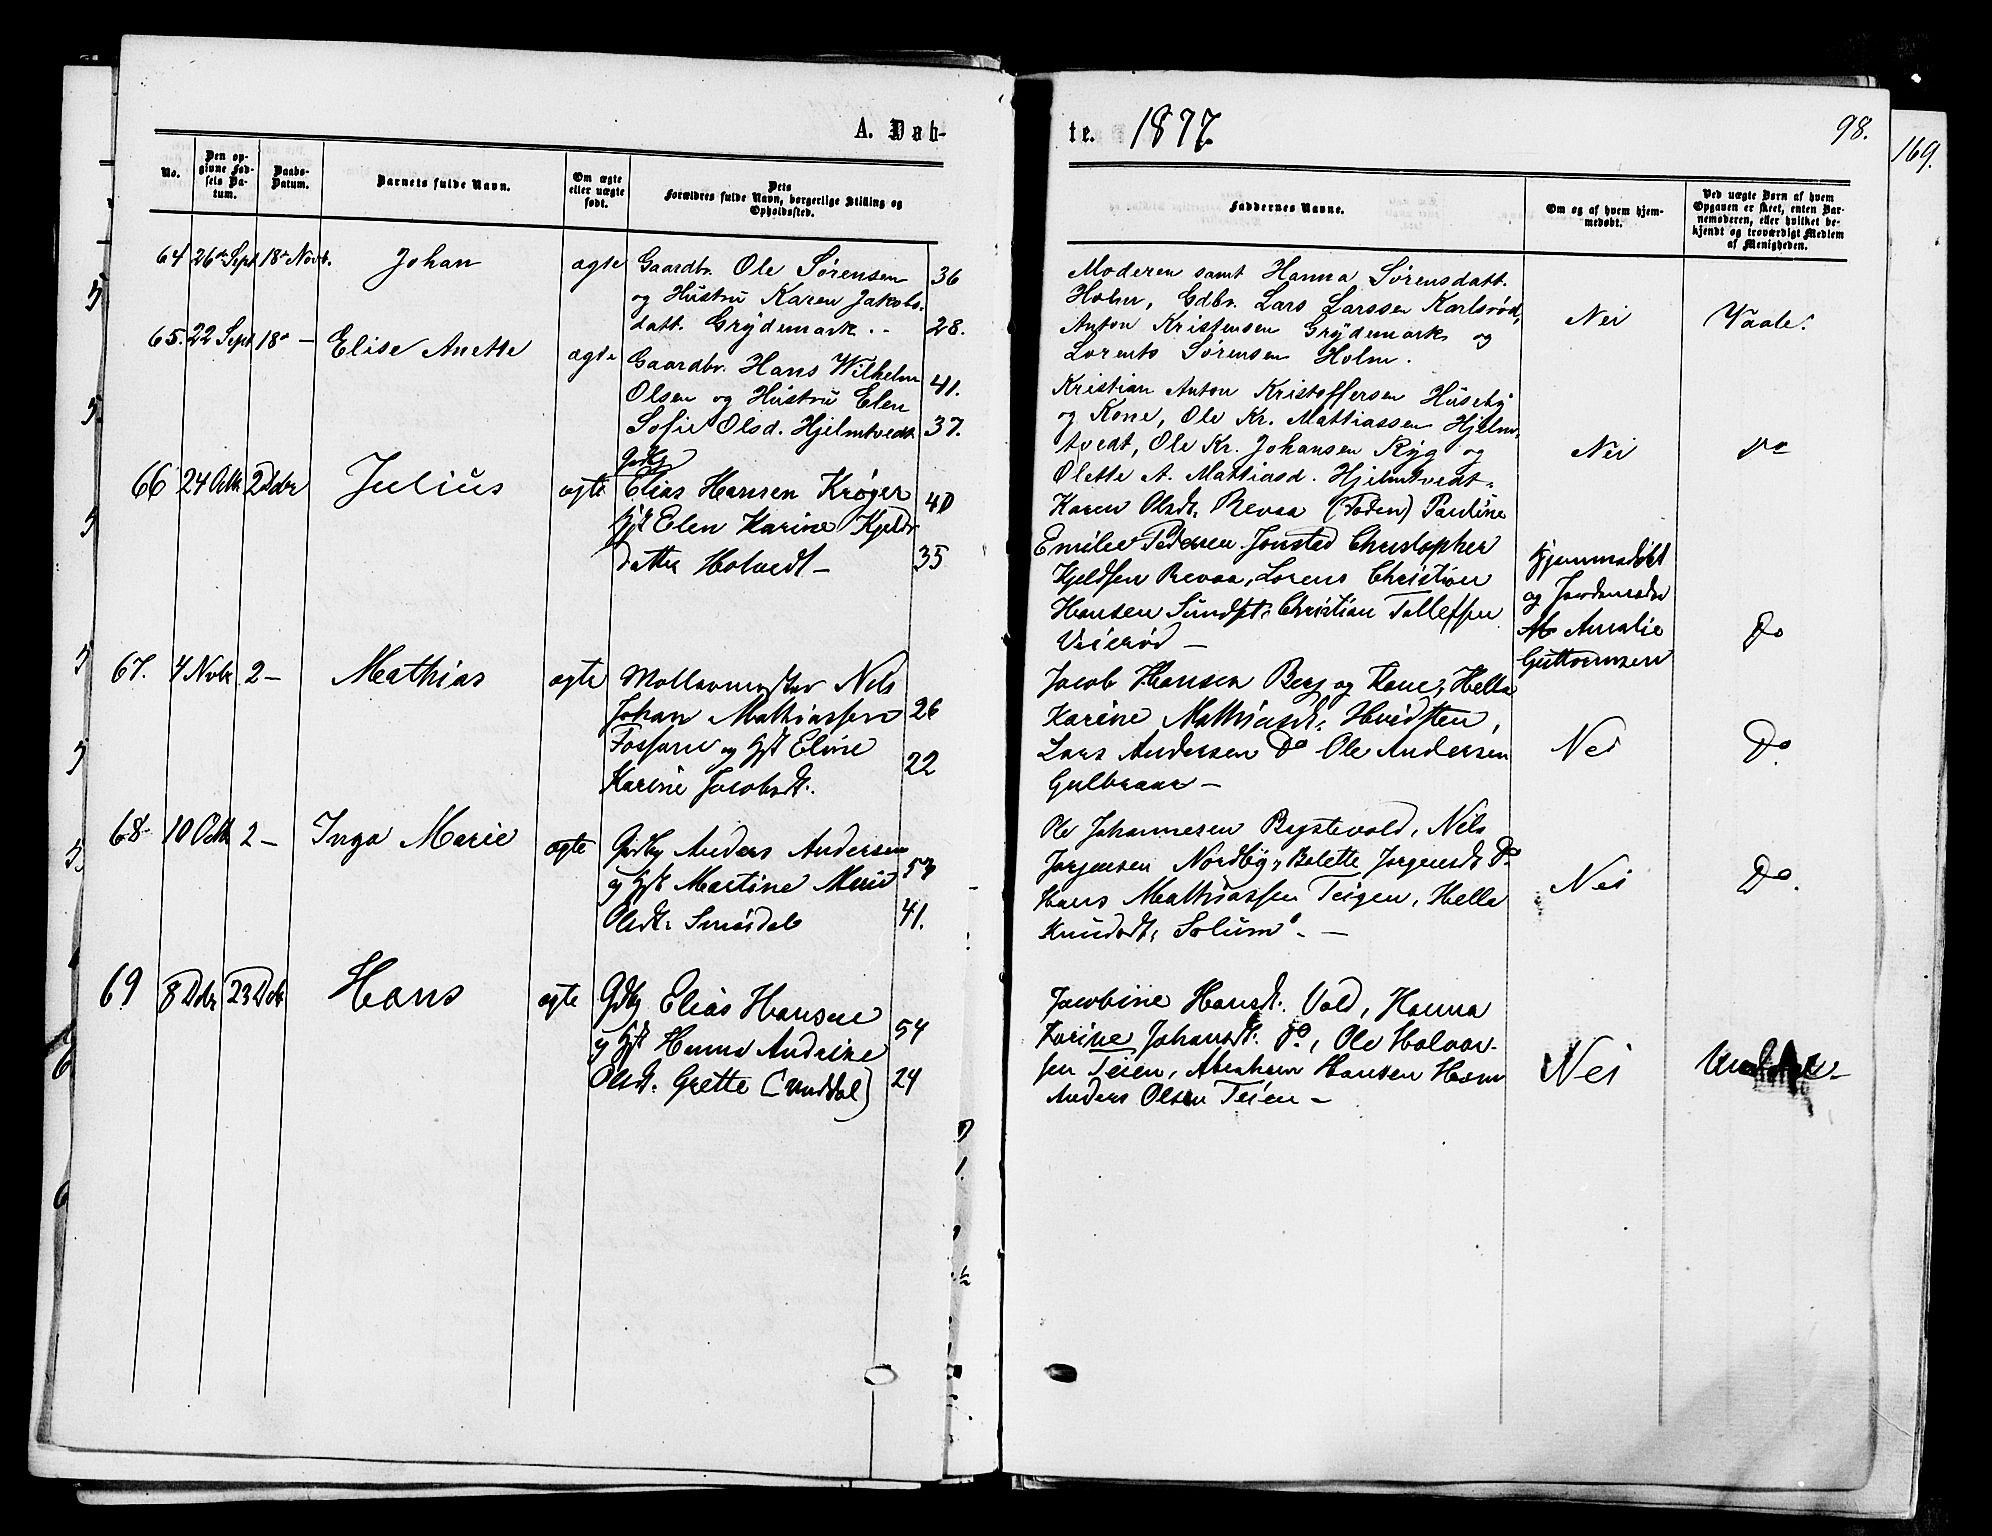 A. Døb-
te. 1877
98.
169.
No.
Den op-
givne Fød-
sels Da-
tum.
Daabs-
Datum.
Barnets fulde Navn.
Om ægte
eller uægte
født.
Dets
Forældres fulde Navn, borgerlige Stilling og
Opholdssted.
Faddernes Navne.
Om og af hvem hjem-
medøbt.
Ved uægte Børn af hvem
Opgaven er skeet, enten Bar-
nemoderen, eller hvilket be-
kjendt og troværdigt Medlem
af Menigheden.
64 26de Sept 18de Novb. Johan ægte
Gaardbr. Ole Sørensen 36
og Hustru Karen Jakobs-
datt. Grydemark.- 28.
Moderen samt Hanna Sørensdatt.
Holm, Gdbr. Lars Larssen Karlsrød,
Anton Kristensen Grydemark og
Lorents Sørensen Holm.
Nei
Vaale.
65. 22 Sept 18de - Elise Anette ægte
Gaardbr. Hans Wilhelm
Olsen og Hustru Elen 41.
Sofie Olsd. Hjelmtvedt 37.
Kristian Anton Kristoffersen Huseby
og Kone, Ole Kr. Mattiassen Hjelm-
tvedt, Ole Kr. Johansen Ryg og
Olette A. Mattiasd. Hjelmtvedt.
Nei
Do
66 24 Octb 2 Dcbr Julius ægte
Elias Hansen Krøger 40
Hst Elen Karine Kjelds-
datter Holvedt - 35
Karen Olsdt. Revaa (Foden) Pauline
Emilie Pedersen Jonsted Christopher
Kjeldsen Revaa, Lorens Christian
Hansen Sundset, Christian Tollefsen
Veierød -
Hjemmedøbt
og Jordemoder
Amalie
Guttormsen
Do
67. 4 Novbr 2 - Mathias ægte
Møllermester Nils
Johan Mathiassen 26
Fossane og Hst Eline
Karine Jacobsdt. 22
Jacob Hansen Berg og Kone, Hella
Karine Mathiasdt. Hvidsten,
Lars Andersen Do Ole Andersen
Gulbraar -
Nei
Do
68. 10 Octb 2 - Inga Marie ægte
Gdbr Anders Andersen
og Hst Martine Marie 53
Olsdt. Smørdal 41.
Ole Johannesen Bystevold, Nils
Jørgensen Nordby, Bolette Jørgensdt Do
Hans Mathiassen Teigen, Hella
Knudsdt. Solum. -
Nei
Do.
69 8 Dcbr 23 Dcb Hans ægte
Gdbr Elias Hansen
og Hst Hanna Andrine 54
Olsdt. Grette (Unddal) 24
Jacobine Hansdt. Vold, Hanna
Karine Johansdt. Do, Ole Halvor-
sen Teien, Abraham Hansen Hem
Anders Olsen Teien -
Nei